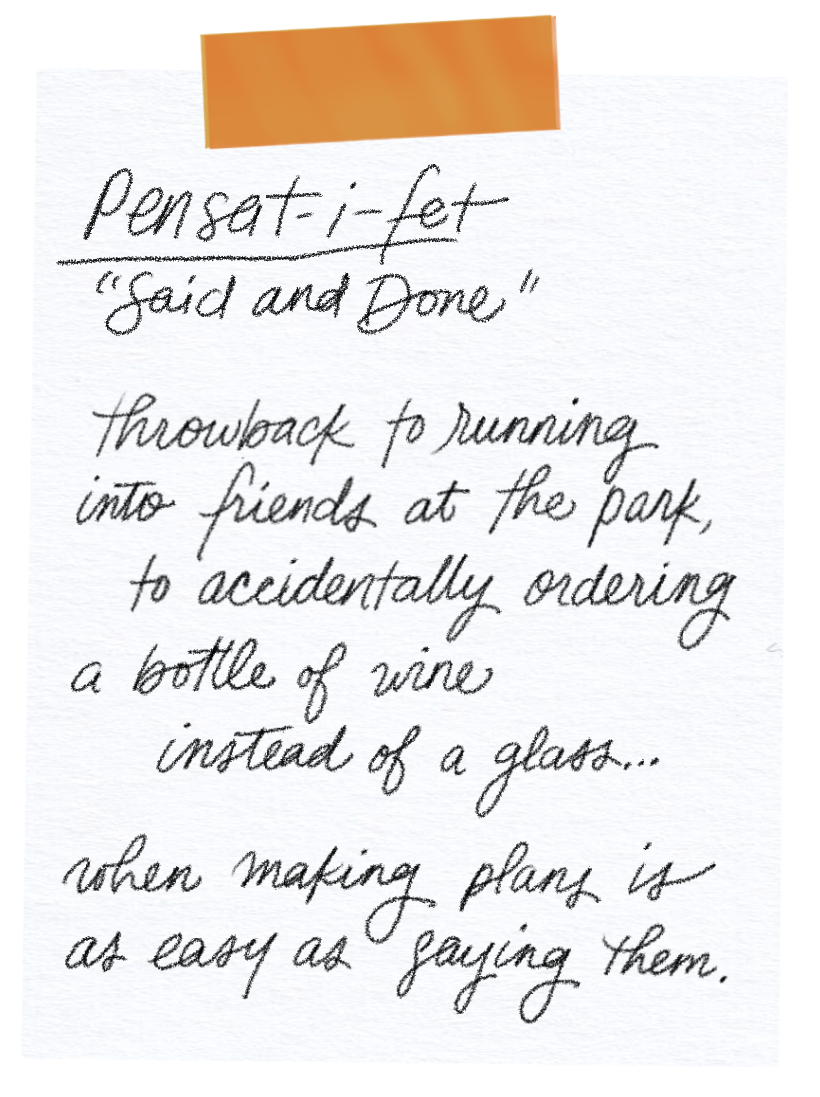 Pensat-i-fet
"Said and Done"
throwback to running
into friends at the park,
to accidentally ordering
a bottle of wine
instead of a glass...
when making plans is
as easy as saying them.